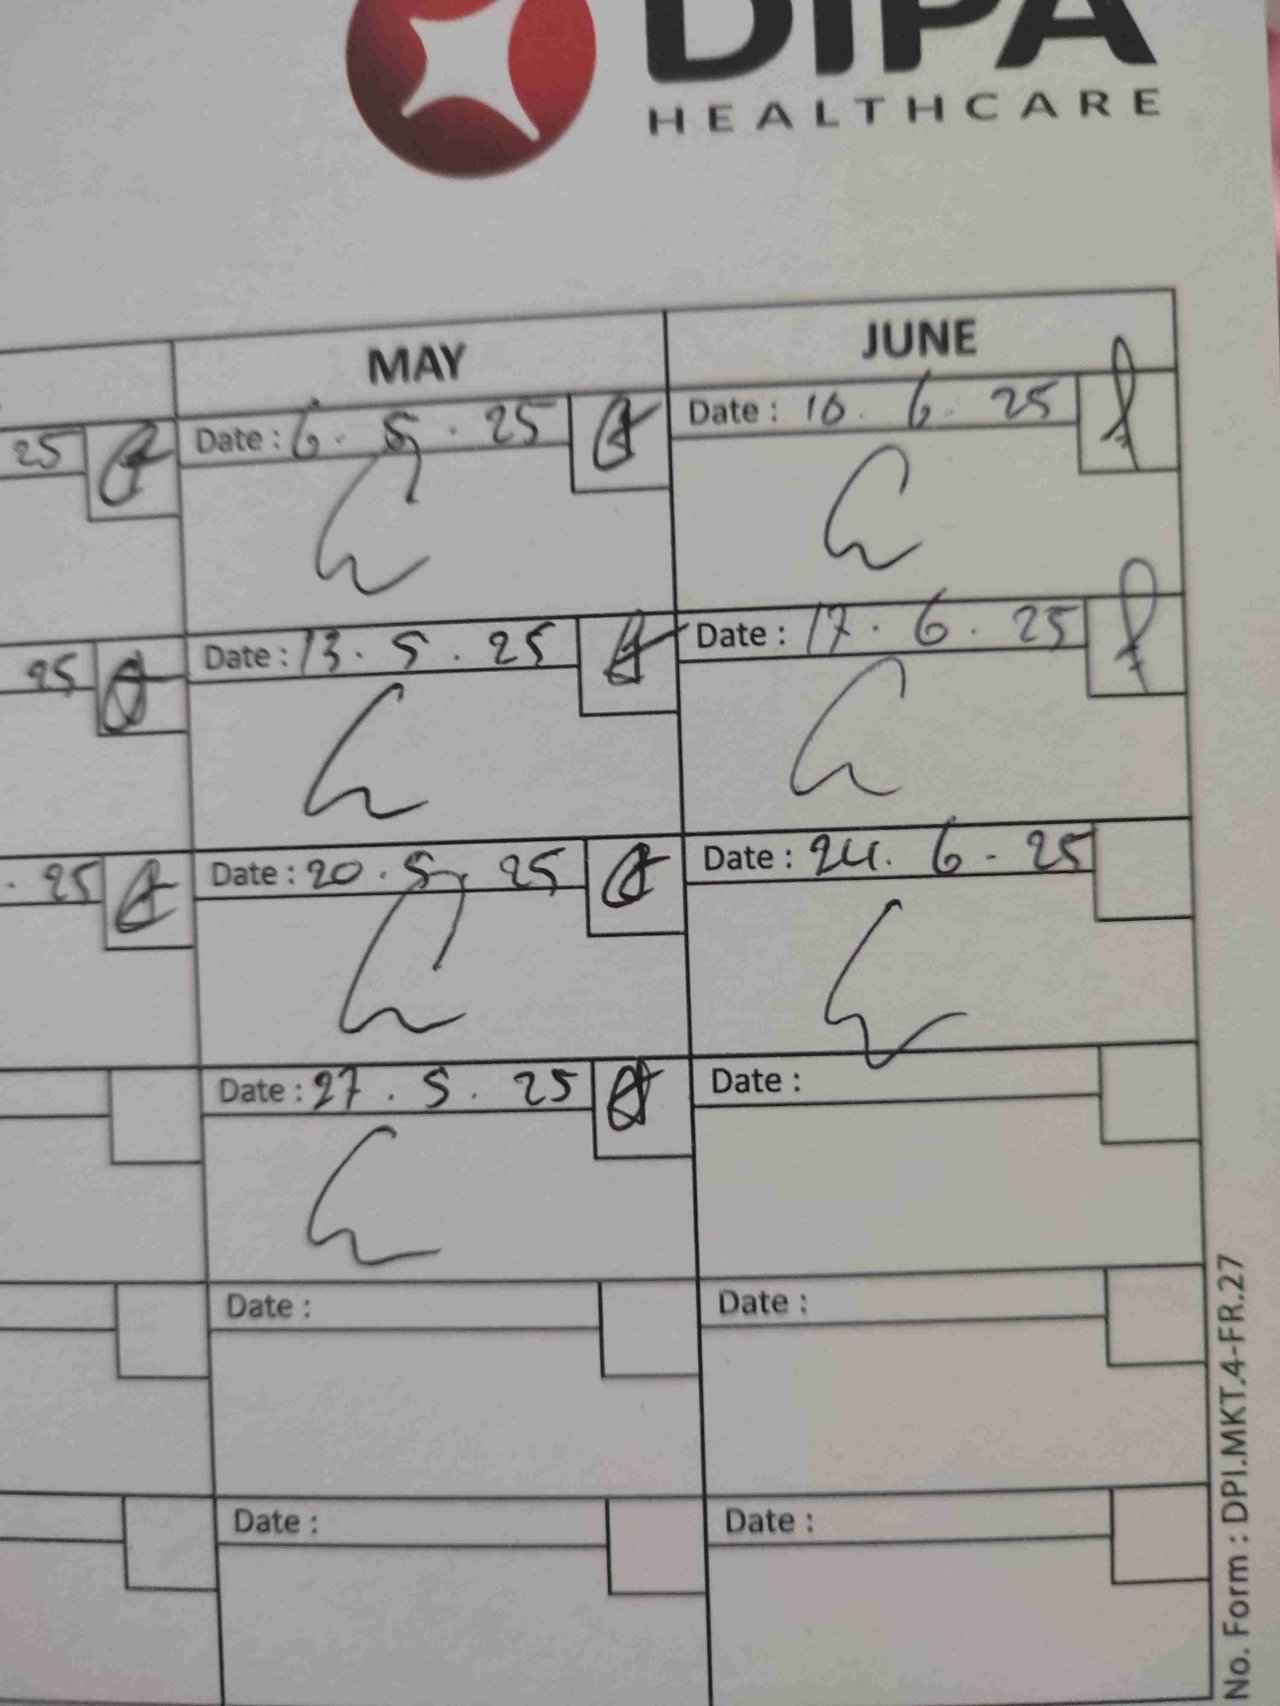 DIPA
HEALTHCARE
MAY JUNE
25 Date : 6 . 5 . 25 Date : 10 . 6 . 25
25 Date : 13 . 5 . 25 Date : 17 . 6 . 25
. 25 Date : 20 . 5 . 25 Date : 24 . 6 - 25
Date : 27 . 5 . 25 Date :
Date : Date :
Date : Date :
No. Form : DPI.MKT.4-FR.27